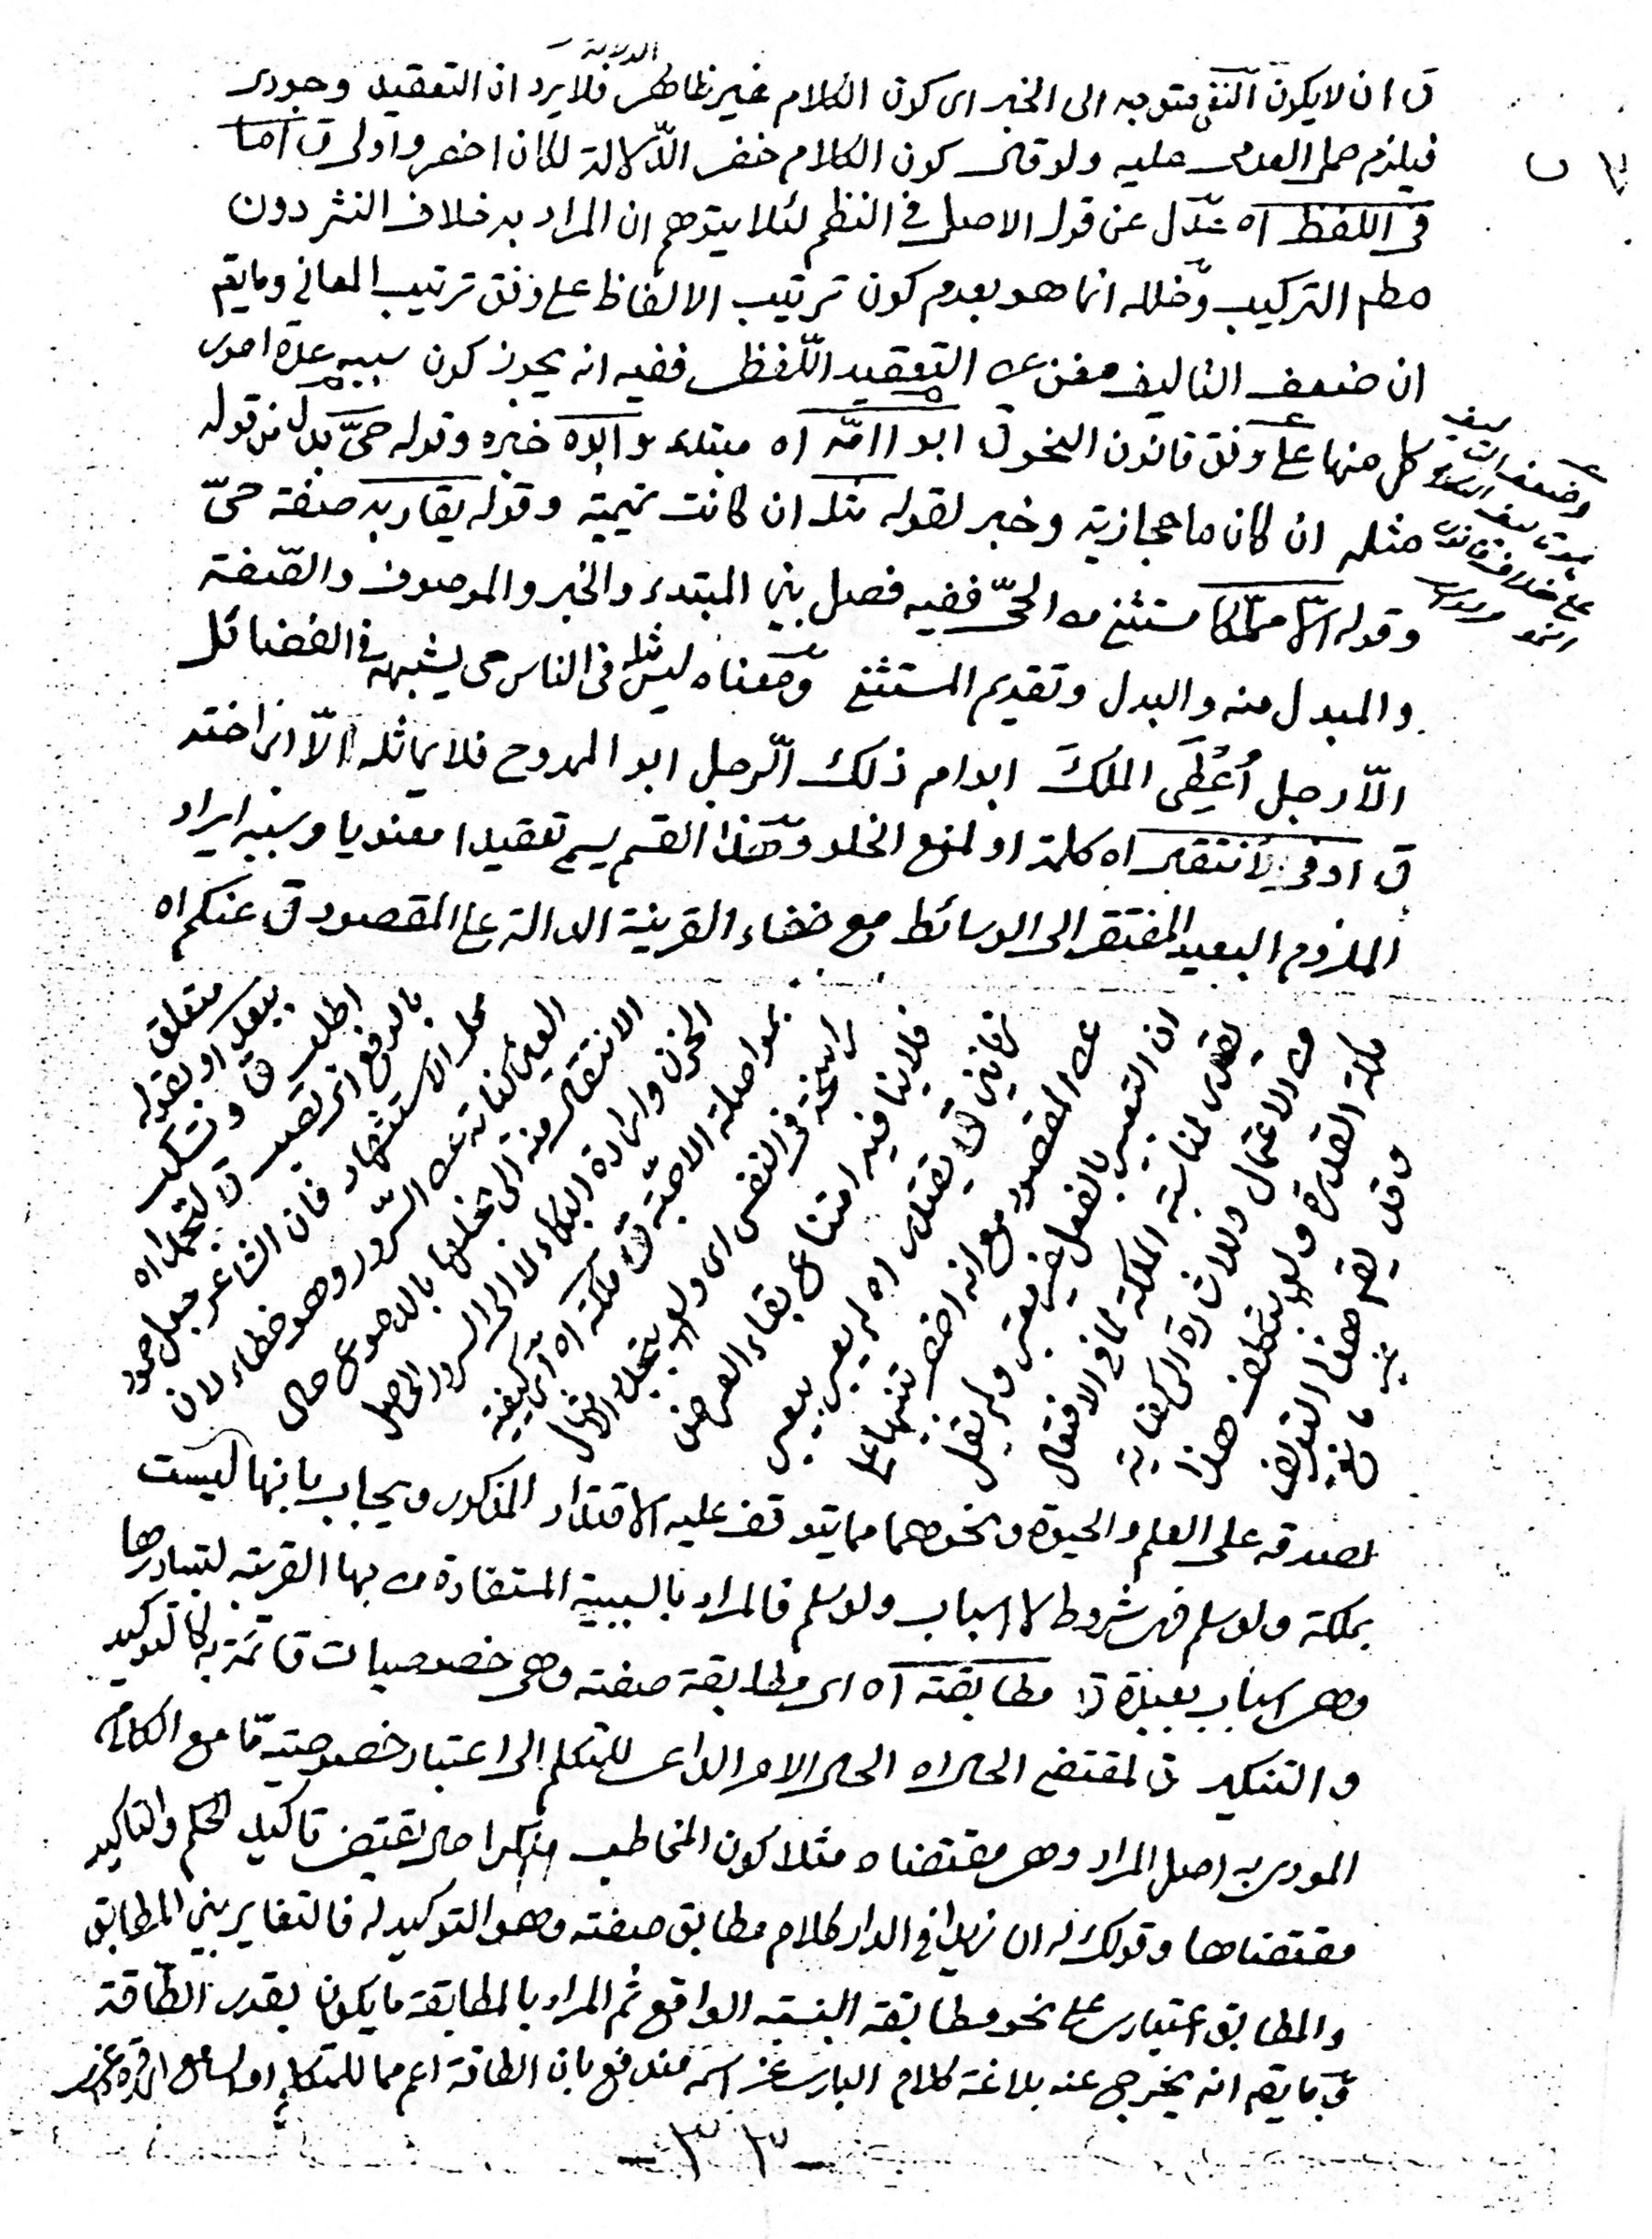 الدلالة
ق ان لا يكون النفى متوجه الى الخبر اى كون الكلام غير ظاهر فلا يرد ان التعقيد وجودى
فيلزم حمل العدمى عليه ولو قال كون الكلام خفى الدّلالة لكان اخصر واولى ق اما
فى اللفظ اه عدل عن قول الاصل فى النظم لئلا يتوهم ان المراد به خلاف النثر دون
مطم التركيب وخلله انما هو بعدم كون ترتيب الالفاظ على وفق ترتيب المعانى وما يقم
ان ضعف التاليف مغن عن التعقيد اللّفظى ففيه انه يجوز كون سببه عدة امور
كل منها على وفق قانون النحو ق ابو امّه اه مبتدء وابوه خبره وقوله حىّ بدل من قوله
مثله ان كان ما حجازية وخبر لقوله مثله ان كانت تميمية وقوله يقاربه صفة حىّ
وقوله الّا مملّكا مستثنى من الحىّ ففيه فصل بين المبتدء والخبر والموصوف والصّفة
والمبدل منه والبدل وتقديم المستثنى ومعناه ليس مثله فى الناس حى يشبهه فى الفضائل
الّا رجل اُعْطِىَ الملكَ ابو ام ذلك الّرجل ابو الممدوح فلا يماثله الّا ابن اخته
ق او فى الانتقال اه كلمة او لمنع الخلو وهذا القسم يسم تعقيدا معنويا وسببه ايراد
الملزوم البعيد المفتقر الى الوسائط مع خفاء القرينة الدالة على المقصود ق عنكم اه
متعلق
ببعد او بقوله
اطلب ق وتسكب
بالرفع اى تصب ق لتجمدا اه
محل الاستشهاد فان الشاعر جعل جمود
العين كناية عن السّرور وهو خطاء لان
الانتقال منه الى بخلها بالدموع حال
الحزن وارادة البكاء لا الى السرور الحاصل
بمواصلة الاحبّة ق ملكة اه اى كيفية
راسخة فى النفس اى
فلا ينافيه امتناع بقاء العرض
زمانين ق يقتدر اه لم يعبر بيعبر
عن المقصود مع انه اخصر تنبيها على
ان التعبير بالفعل غير معتبر ولم يقل
يقدر لمناسبة الملكة لما فى الافتعال
من الاعتمال وللاشارة الى كفاية
ملكة القدرة ولو بتكلف هذا
وقد يقم هذا التعريف
غير مانع
لصدقه على العلم والحيوة ونحوهما مما يتوقف عليه الاقتدار المذكور ويجاب بانها ليست
بملكة ولو سلم فهى شروط لا اسباب ولو سلم فالمراد بالسببية المستفادة من بها القريبة لتبادرها
وهى اسباب بعيدة ق مطابقته اه اى مطابقة صفته وهى خصوصيات قائمة به كالتوكيد
والتنكير ق لمقتضى الحال اه الحال الامر الداعى للمتكلم الى اعتبار خصوصية مّا مع الكلام
المودى به اصل المراد وهى مقتضاه مثلا كون المخاطب منكرا حال يقتضى تاكيد الحكم والتاكيد
مقتضاها وقولك له ان زيدا فى الدار كلام مطابق صفته وهو التوكيد له فالتغاير بين المطابق
والمطابق اعتبارى على نحو مطابقة النسبة الواقع ثم المراد بالمطابقة ما يكون بقدر الطّاقة
فما يقم انه يخرج عنه بلاغة كلام البارى عز اسمه مندفع بان الطاقة اعم مما للمتكلم او السامع
ـ ٣٣ ـ